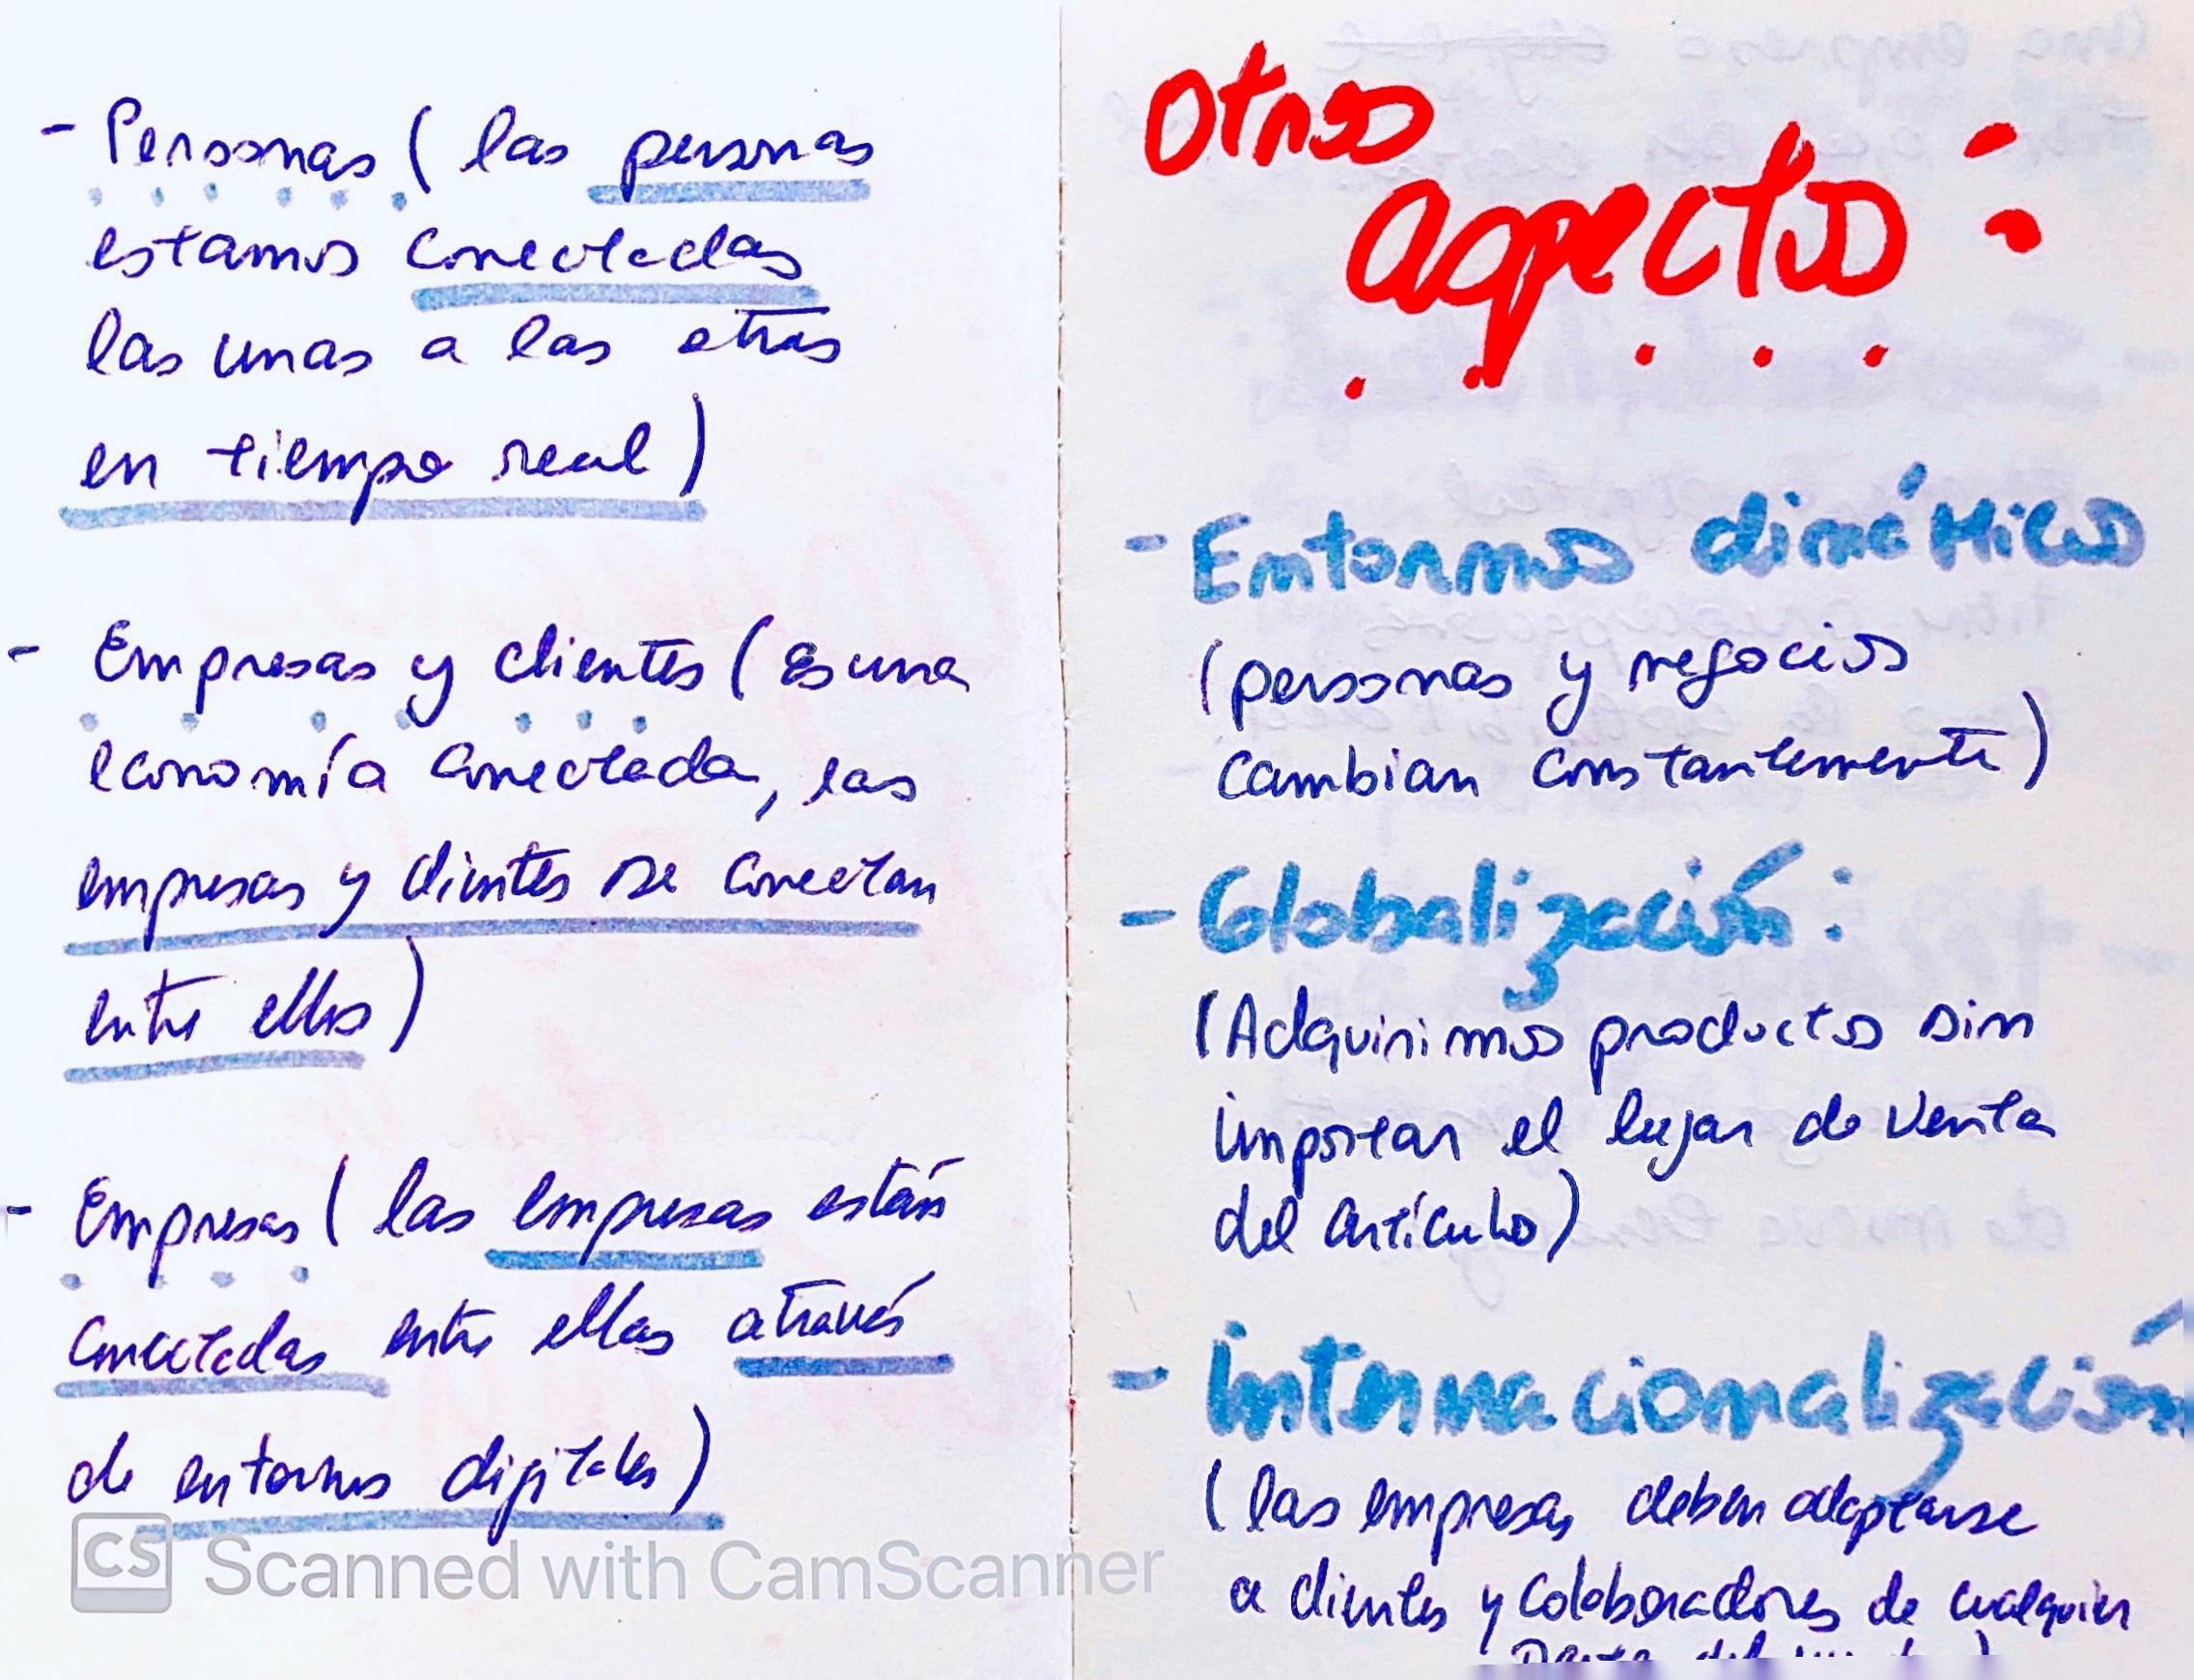 - Personas ( las personas
estamos conectadas
las unas a las otras
en tiempo real )
- Empresas y clientes ( es una
economía conectada, las
empresas y clientes se conectan
entre ellos )
- Empresas ( las empresas están
conectadas entre ellas através
de entornos digitales )
CS Scanned with CamScanner
Otros
aspectos :
- Entornos dinámicos
( personas y negocios
cambian constantemente )
- Globalización :
( Adquirimos productos sin
importar el lugar de venta
del artículo )
- Internacionalización
( las empresas deben adaptarse
a clientes y colaboradores de cualquier
parte del mundo )